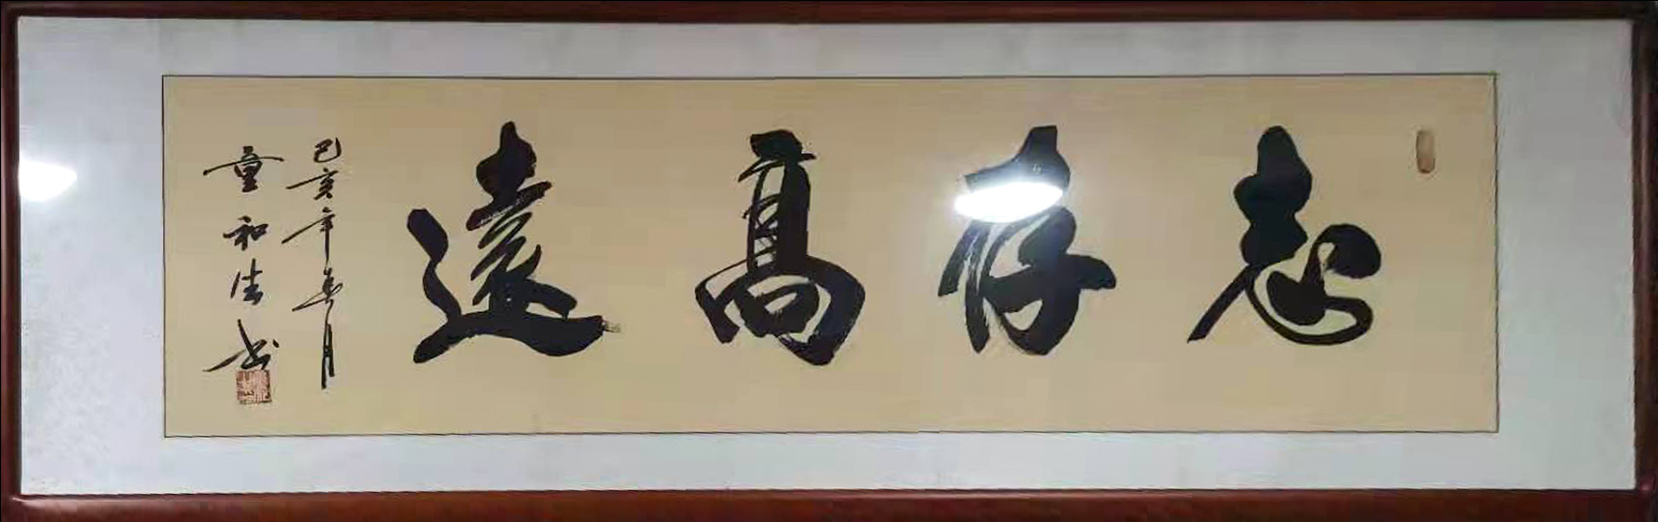 志存高遠
己亥年春月
童和生书